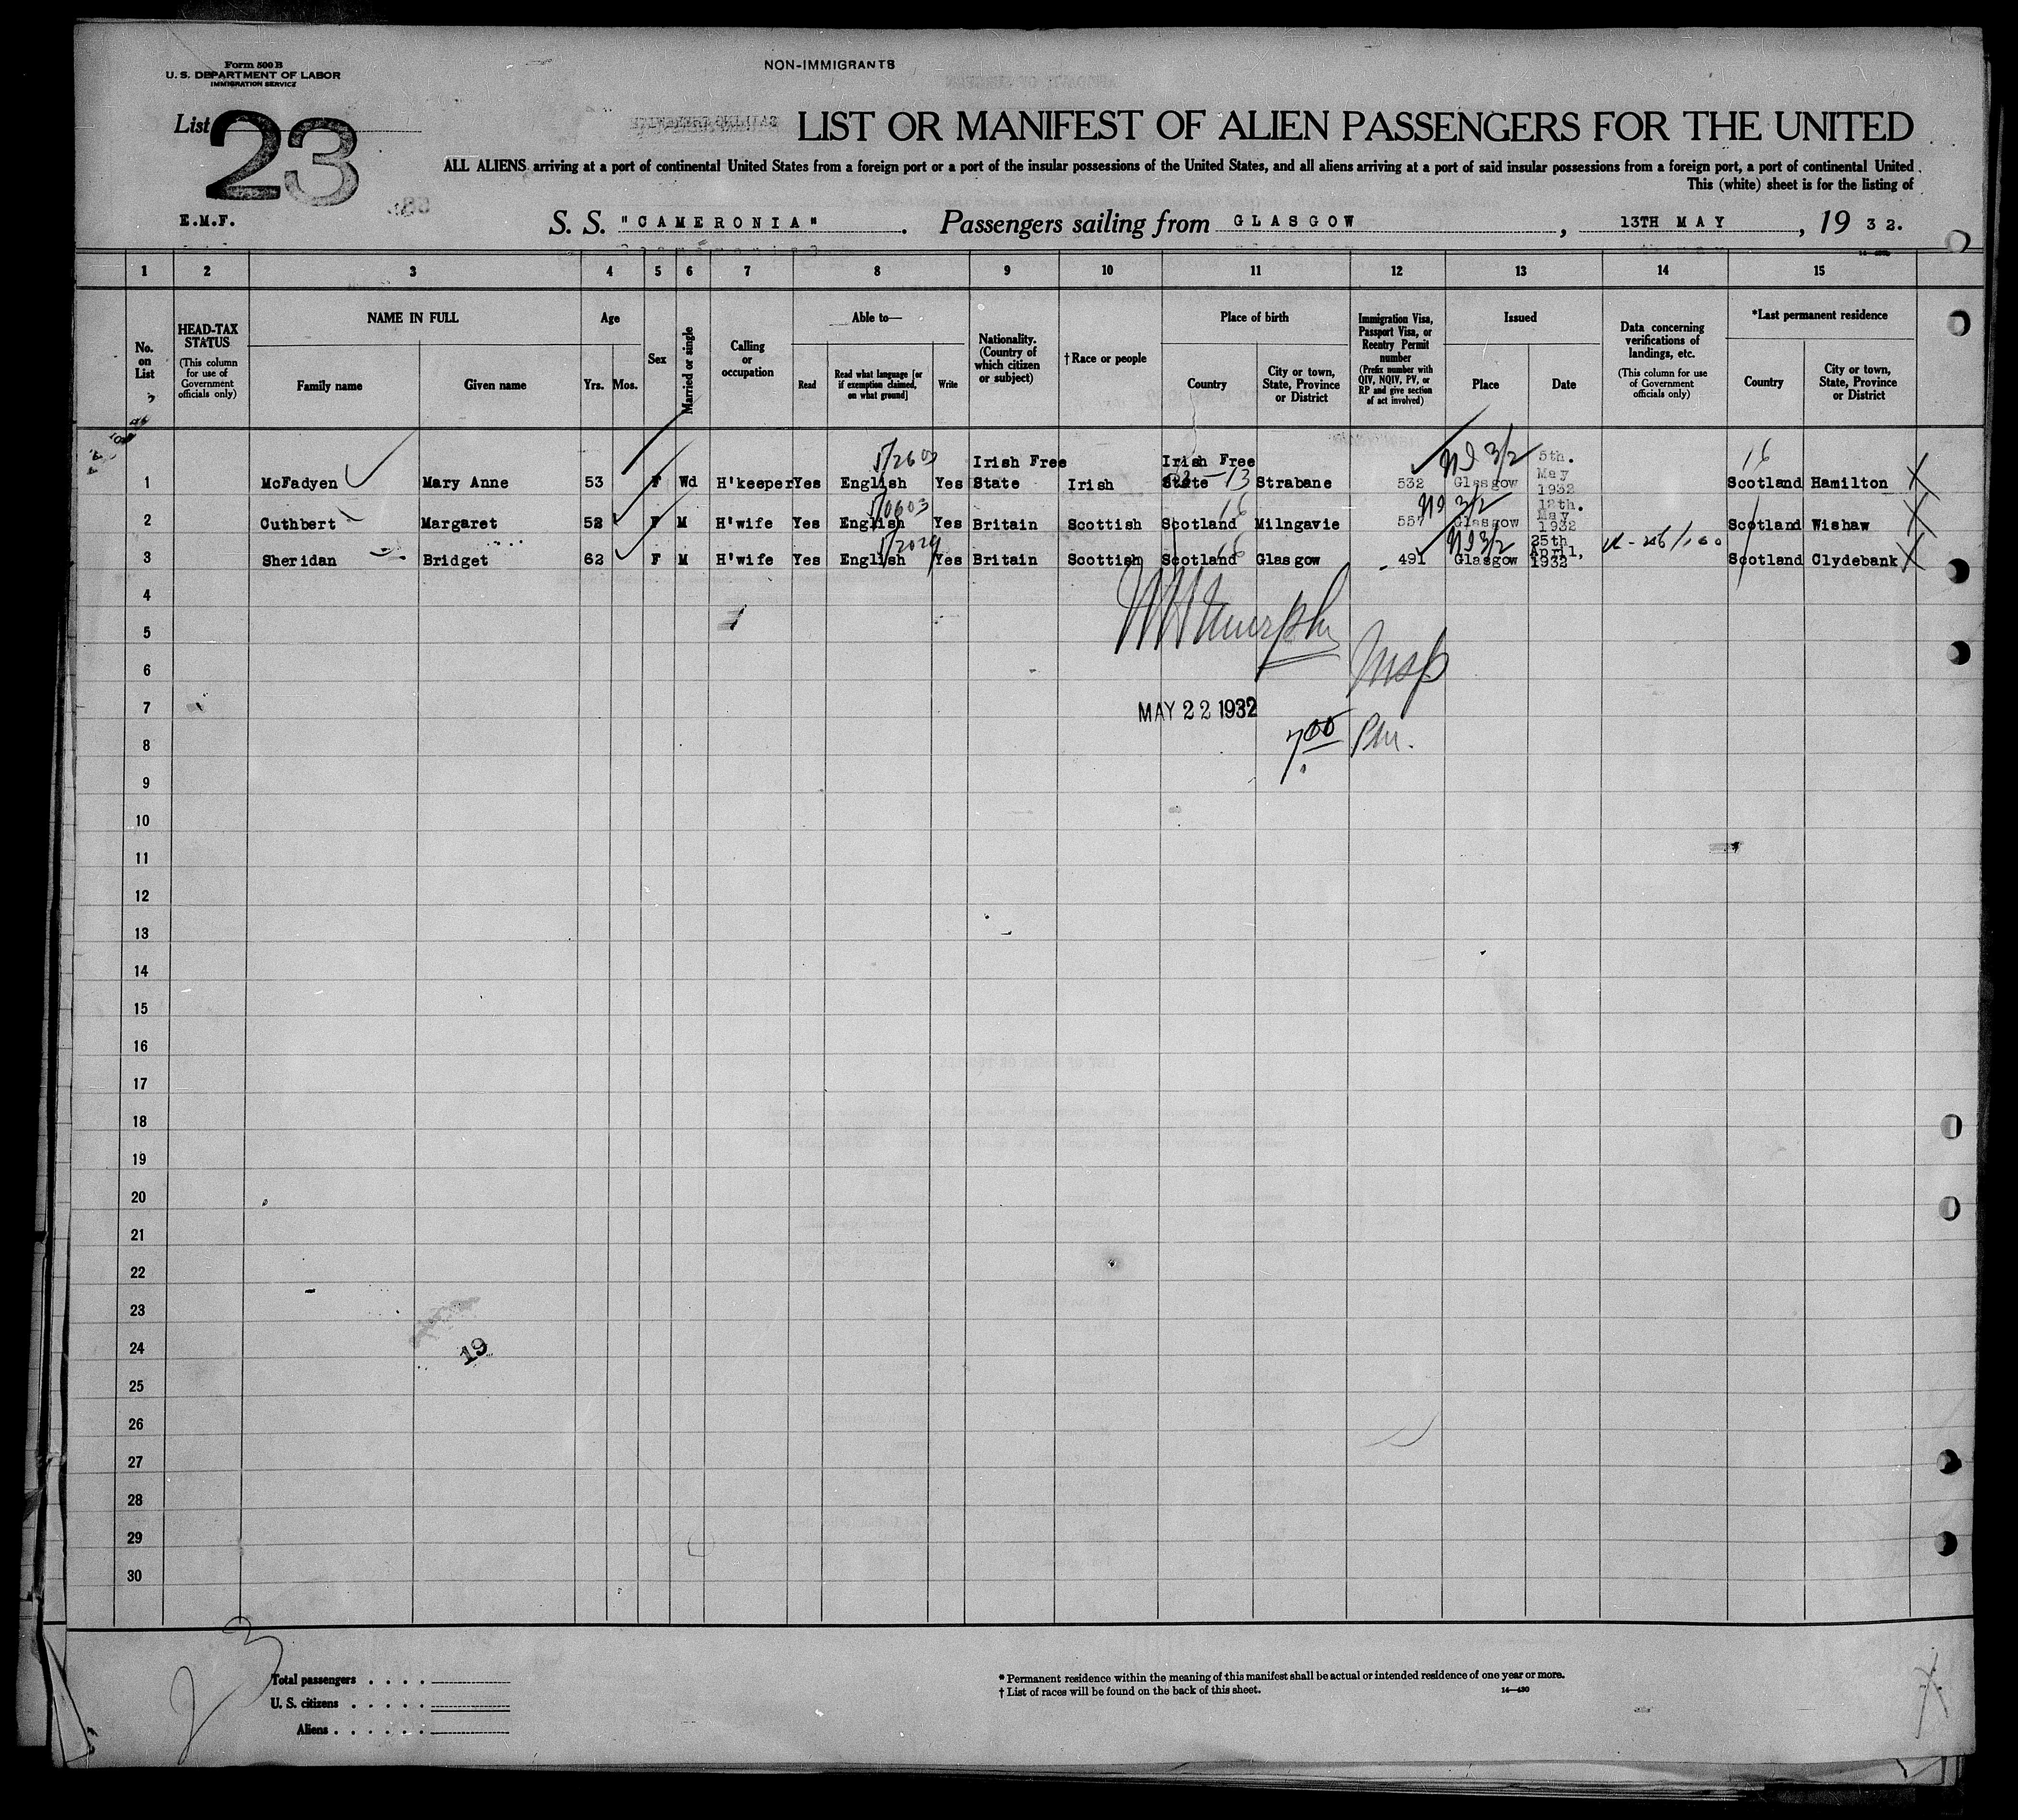 Form 500 B
U. S. DEPARTMENT OF LABOR
IMMIGRATION SERVICE
NON-IMMIGRANTS
List 23
LIST OR MANIFEST OF ALIEN PASSENGERS FOR THE UNITED
ALL ALIENS arriving at a port of continental United States from a foreign port or a port of the insular possessions of the United States, and all aliens arriving at a port of said insular possessions from a foreign port, a port of continental United
This (white) sheet is for the listing of
E.M.F.
S. S. "CAMERONIA". Passengers sailing from GLASGOW, 13TH MAY, 19 32.
1 2 3 4 5 6 7 8 9 10 11 12 13 14 15
No. on List
HEAD-TAX STATUS (This column for use of Government officials only)
NAME IN FULL
Family name
Given name
Age
Yrs. Mos.
Sex
Married or single
Calling or occupation
Able to—
Read
Read what language [or if exemption claimed, on what ground]
Write
Nationality. (Country of which citizen or subject)
†Race or people
Place of birth
Country
City or town, State, Province or District
Immigration Visa, Passport Visa, or Reentry Permit number (Prefix number with QIV, NQIV, PV, or RP and give section of act involved)
Issued
Place
Date
Data concerning verifications of landings, etc. (This column for use of Government officials only)
*Last permanent residence
Country
City or town, State, Province or District
1 McFadyen Mary Anne 53 F Wd H'keeper Yes English Yes Irish Free State Irish Irish Free State Strabane 532 Glasgow 5th. May 1932 Scotland Hamilton
2 Cuthbert Margaret 52 F M H'wife Yes English Yes Britain Scottish Scotland Milngavie 557 Glasgow 12th. May 1932 Scotland Wishaw
3 Sheridan Bridget 62 F M H'wife Yes English Yes Britain Scottish Scotland Glasgow 491 Glasgow 25th April, 1932 Scotland Clydebank
4
5
6 Insp
7 MAY 22 1932
8 7.00 Pm.
9
10
11
12
13
14
15
16
17
18
19
20
21
22
23
24 19
25
26
27
28
29
30
23
Total passengers
U. S. citizens
Aliens
* Permanent residence within the meaning of this manifest shall be actual or intended residence of one year or more.
† List of races will be found on the back of this sheet.
14—430